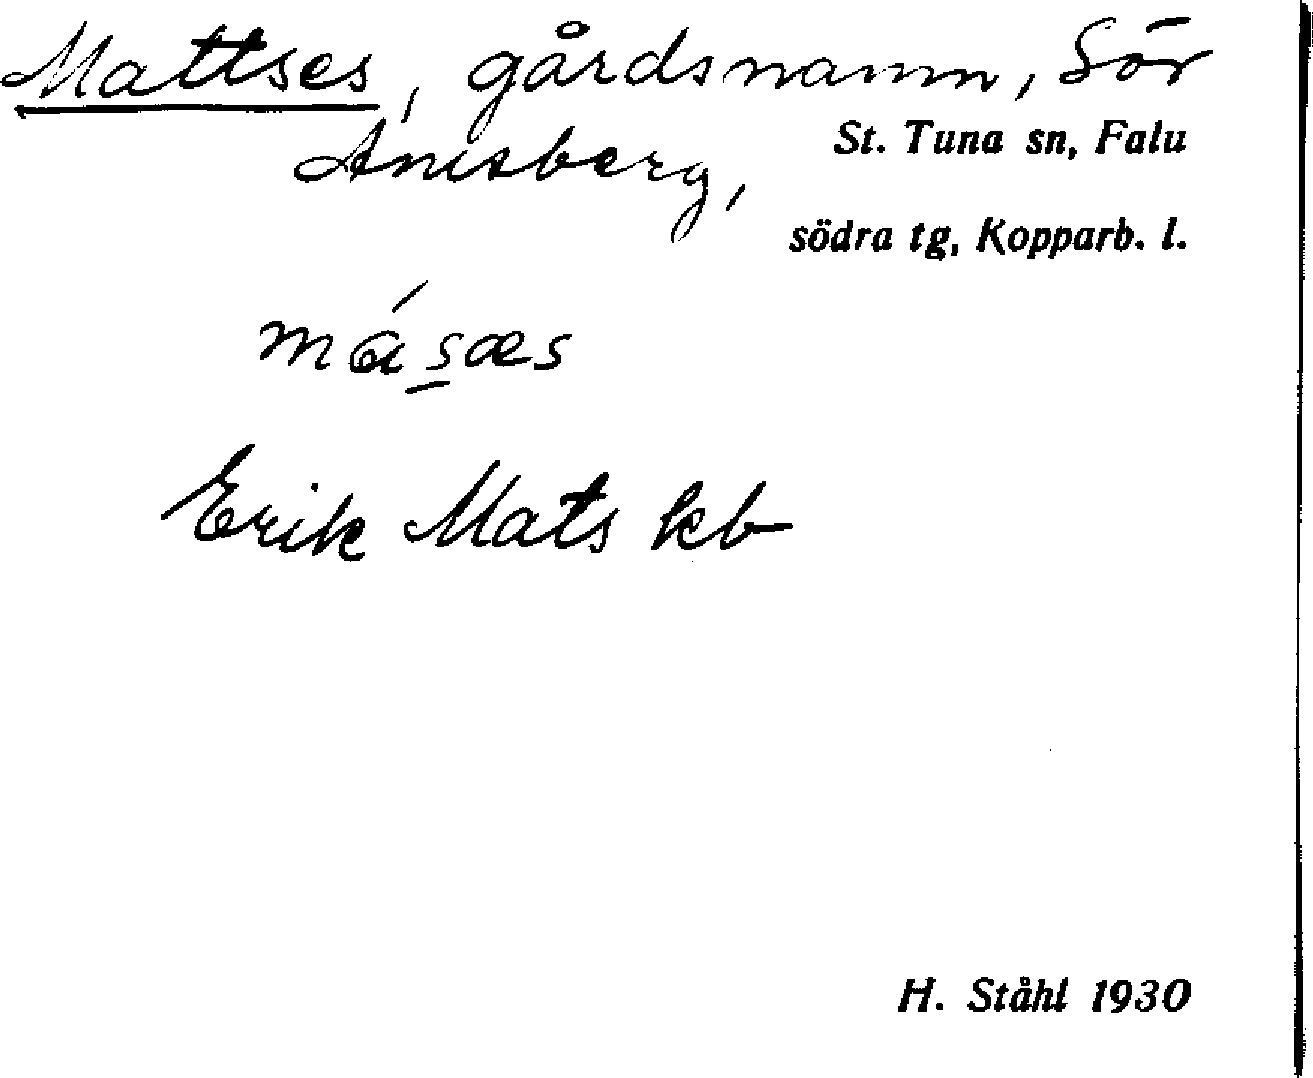 Mattses, gårdsnamn, Sör
Amsberg,
St. Tuna sn, Falu
södra tg, Kopparb. l.
másæs
Erik Mats kb
H. Ståhl 1930